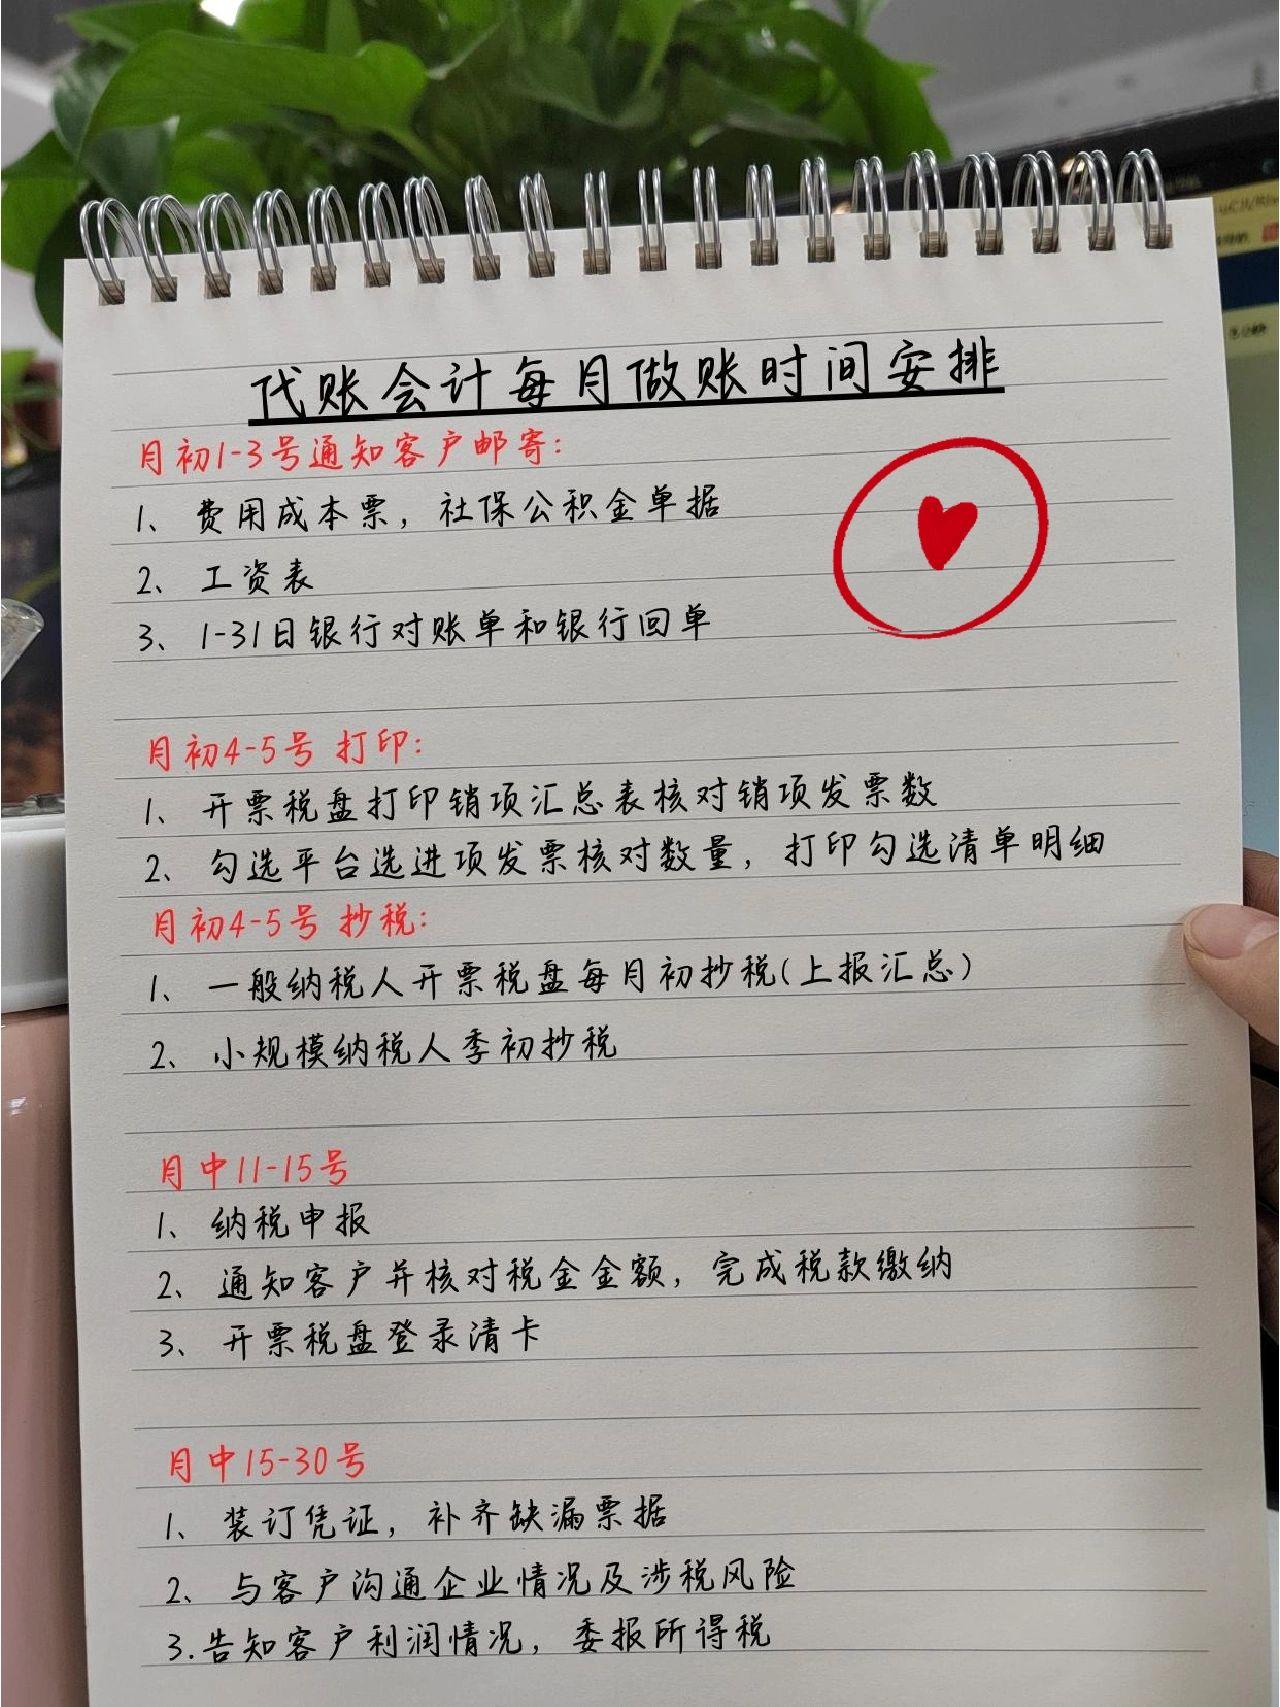 代账会计每月做账时间安排
月初1-3号通知客户邮寄:
1、费用成本票，社保公积金单据
2、工资表
3、1-31日银行对账单和银行回单
月初4-5号 打印:
1、开票税盘打印销项汇总表核对销项发票数
2、勾选平台选进项发票核对数量，打印勾选清单明细
月初4-5号 抄税:
1、一般纳税人开票税盘每月初抄税(上报汇总)
2、小规模纳税人季初抄税
月中11-15号
1、纳税申报
2、通知客户并核对税金金额，完成税款缴纳
3、开票税盘登录清卡
月中15-30号
1、装订凭证，补齐缺漏票据
2、与客户沟通企业情况及涉税风险
3.告知客户利润情况，委报所得税